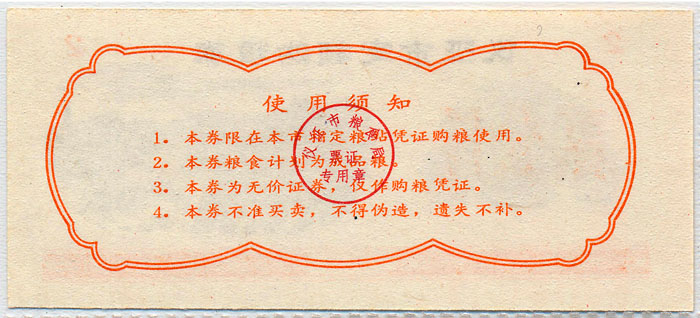 使用须知
1。本券限在本市指定粮站凭证购粮使用。
2。本券粮食计划为成品粮。
3。本券为无价证券，仅作购粮凭证。
4。本券不准买卖，不得伪造，遗失不补。
市粮食局
票证
专用章